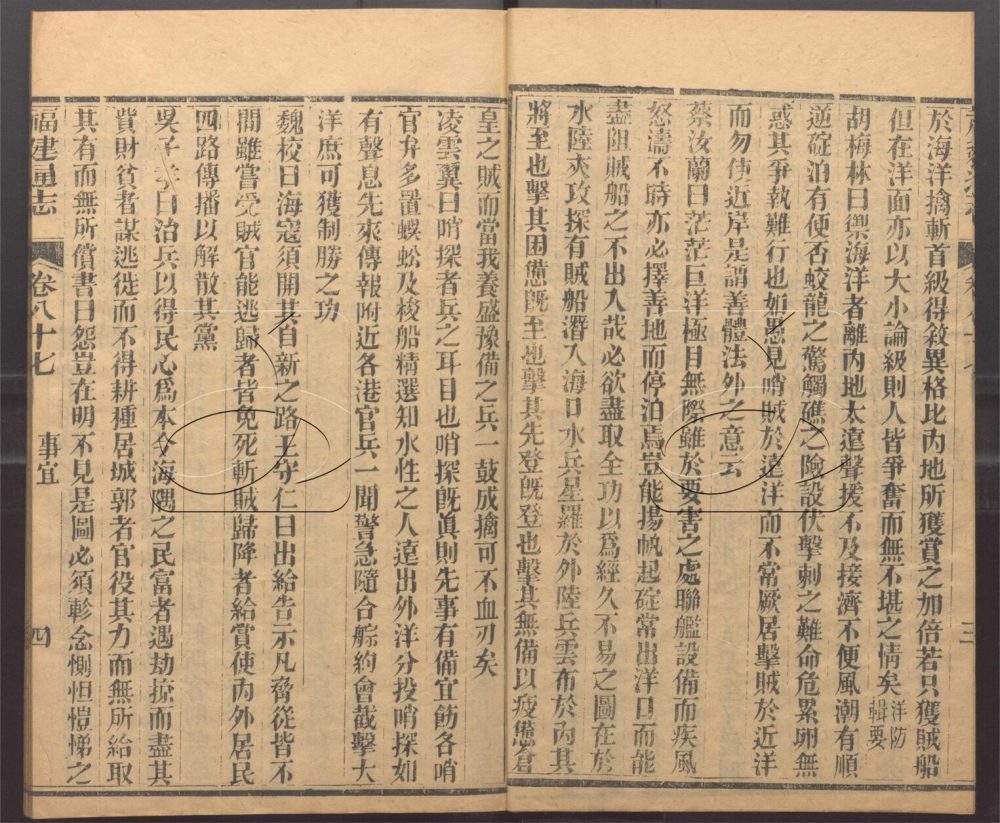 於海洋擒斬首級得敘異格比內地所獲賞之加倍若只獲賊船
但在洋面亦以大小論級則人皆爭奮而無不堪之情矣洋防輯要
胡梅林曰禦海洋者離內地太遠聲援不及接濟不便風潮有順
逆碇泊有便否蛟龍之驚觸礁之險設伏擊刺之難命危累卵無
惑其爭執難行也如愚見哨賊於遠洋而不常厥居擊賊於近洋
而勿使近岸是謂善體法外之意云
蔡汝蘭曰茫茫巨洋極目無際雖於要害之處聯艦設備而疾風
怒濤不時亦必擇善地而停泊焉豈能揚帆起碇常出洋口而能
盡阻賊船之不出入哉必欲盡取全功以爲經久不易之圖在於
水陸夾攻探有賊船潛入海口水兵星羅於外陸兵雲布於內其
將至也擊其困憊旣至也擊其先登旣登也擊其無備以疲憊倉
皇之賊而當我養盛豫備之兵一鼓成擒可不血刃矣
凌雲翼曰哨探者兵之耳目也哨探旣眞則先事有備宜飭各哨
官弁多置蜈蚣及梭船精選知水性之人遠出外洋分投哨探如
有聲息先來傳報附近各港官兵一聞警急隨合䑸約會截擊大
洋庶可獲制勝之功
魏校曰海寇須開其自新之路王守仁曰出給告示凡脅從皆不
問雖嘗受賊官能逃歸者皆免死斬賊歸降者給賞使內外居民
四路傳播以解散其黨
吳子孝曰治兵以得民心爲本今海隅之民富者遇劫掠而盡其
貲財貧者謀逃徙而不得耕種居城郭者官役其力而無所給取
其有而無所償書曰怨豈在明不見是圖必須軫念惻怛愷悌之
福建通志 卷八十七 事宜 四